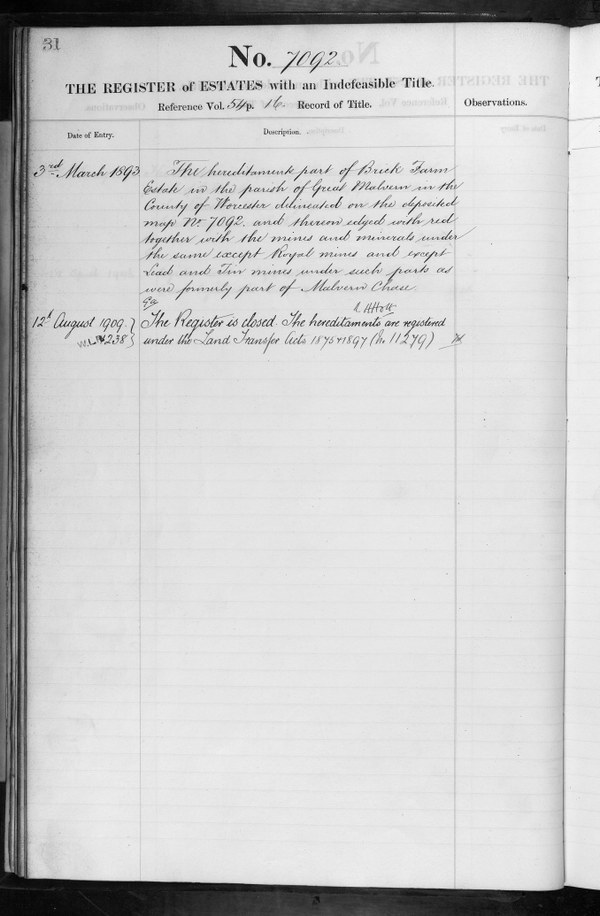 31
No. 7092
THE REGISTER of ESTATES with an Indefeasible Title.
Reference Vol. 54 p. 16. Record of Title.
Observations.
Date of Entry.
Description.
3rd March 1893
The hereditaments part of Brick Farm
Estate in the parish of Great Malvern in the
County of Worcester delineated on the deposited
map No 7092. and thereon edged with red
together with the mines and minerals under
the same except Royal mines and except
Lead and Tin mines under such parts as
were formerly part of Malvern Chase.
Holt
12th August 1909. The Register is closed. The hereditaments are registered
238 under the Land Transfer Acts 1875 & 1897 (No 11279)